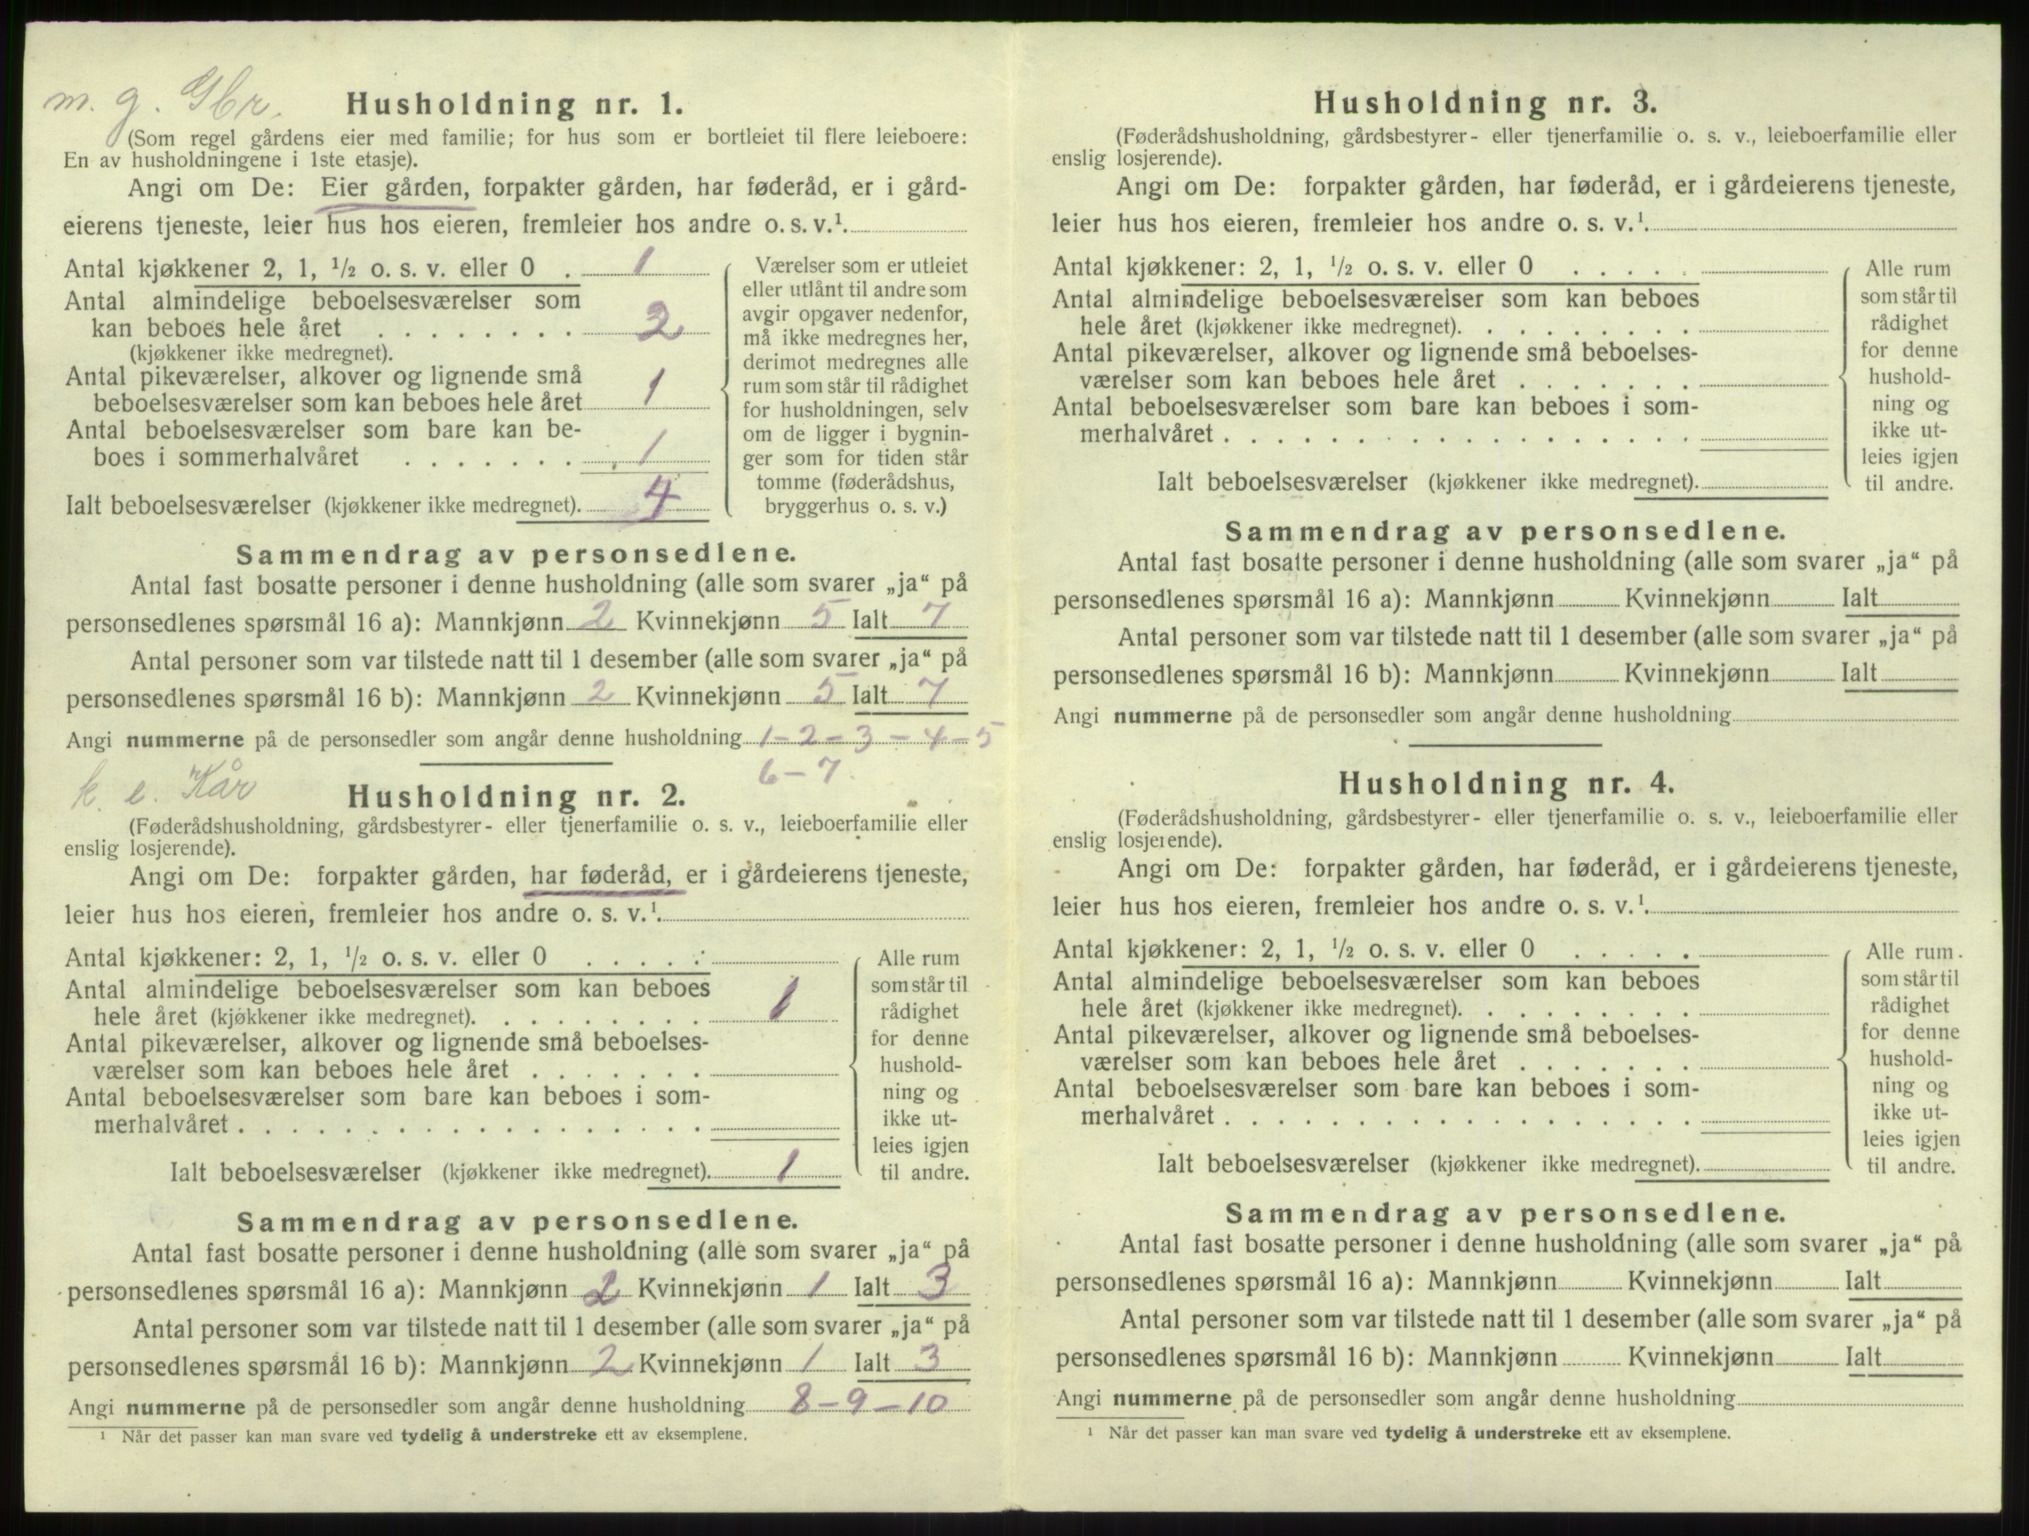 m. g. Gbr.
Husholdning nr. 1.
(Som regel gårdens eier med familie; for hus som er bortleiet til flere leieboere:
En av husholdningene i 1ste etasje).
Angi om De: Eier gården, forpakter gården, har føderåd, er i gård-
eierens tjeneste, leier hus hos eieren, fremleier hos andre o. s. v.¹
Antal kjøkkener 2, 1, ½ o. s. v. eller 0 . 1
Antal almindelige beboelsesværelser som
kan beboes hele året . . . . . . . . 2
(kjøkkener ikke medregnet).
Antal pikeværelser, alkover og lignende små
beboelsesværelser som kan beboes hele året 1
Antal beboelsesværelser som bare kan be-
boes i sommerhalvåret . . . . . . . 1
Ialt beboelsesværelser (kjøkkener ikke medregnet). 4
Værelser som er utleiet
eller utlånt til andre som
avgir opgaver nedenfor,
må ikke medregnes her,
derimot medregnes alle
rum som står til rådighet
for husholdningen, selv
om de ligger i bygnin-
ger som for tiden står
tomme (føderådshus,
bryggerhus o. s. v.)
Sammendrag av personsedlene.
Antal fast bosatte personer i denne husholdning (alle som svarer „ja“ på
personsedlenes spørsmål 16 a): Mannkjønn 2 Kvinnekjønn 5 Ialt 7
Antal personer som var tilstede natt til 1 desember (alle som svarer „ja“ på
personsedlenes spørsmål 16 b): Mannkjønn 2 Kvinnekjønn 5 Ialt 7
Angi nummerne på de personsedler som angår denne husholdning 1-2-3-4-5
6-7
k. e. Kår
Husholdning nr. 2.
(Føderådshusholdning, gårdsbestyrer- eller tjenerfamilie o. s. v., leieboerfamilie eller
enslig losjerende).
Angi om De: forpakter gården, har føderåd, er i gårdeierens tjeneste,
leier hus hos eieren, fremleier hos andre o. s. v.¹
Antal kjøkkener: 2, 1, ½ o. s. v. eller 0 . . . . .
Antal almindelige beboelsesværelser som kan beboes
hele året (kjøkkener ikke medregnet). . . . . . . . . 1
Antal pikeværelser, alkover og lignende små beboelses-
værelser som kan beboes hele året . . . . . . .
Antal beboelsesværelser som bare kan beboes i som-
merhalvåret . . . . . . . . . . . . . . . . . .
Ialt beboelsesværelser (kjøkkener ikke medregnet). 1
Alle rum
som står til
rådighet
for denne
hushold-
ning og
ikke ut-
leies igjen
til andre.
Sammendrag av personsedlene.
Antal fast bosatte personer i denne husholdning (alle som svarer „ja“ på
personsedlenes spørsmål 16 a): Mannkjønn 2 Kvinnekjønn 1 Ialt 3
Antal personer som var tilstede natt til 1 desember (alle som svarer „ja“ på
personsedlenes spørsmål 16 b): Mannkjønn 2 Kvinnekjønn 1 Ialt 3
Angi nummerne på de personsedler som angår denne husholdning 8-9-10
¹ Når det passer kan man svare ved tydelig å understreke ett av eksemplene.
Husholdning nr. 3.
(Føderådshusholdning, gårdsbestyrer- eller tjenerfamilie o. s. v., leieboerfamilie eller
enslig losjerende).
Angi om De: forpakter gården, har føderåd, er i gårdeierens tjeneste,
leier hus hos eieren, fremleier hos andre o. s. v.¹
Antal kjøkkener: 2, 1, ½ o. s. v. eller 0 . . . . .
Antal almindelige beboelsesværelser som kan beboes
hele året (kjøkkener ikke medregnet). . . . . . . . .
Antal pikeværelser, alkover og lignende små beboelses-
værelser som kan beboes hele året . . . . . . .
Antal beboelsesværelser som bare kan beboes i som-
merhalvåret . . . . . . . . . . . . . . . . . .
Ialt beboelsesværelser (kjøkkener ikke medregnet).
Alle rum
som står til
rådighet
for denne
hushold-
ning og
ikke ut-
leies igjen
til andre.
Sammendrag av personsedlene.
Antal fast bosatte personer i denne husholdning (alle som svarer „ja“ på
personsedlenes spørsmål 16 a): Mannkjønn Kvinnekjønn Ialt
Antal personer som var tilstede natt til 1 desember (alle som svarer „ja“ på
personsedlenes spørsmål 16 b): Mannkjønn Kvinnekjønn Ialt
Angi nummerne på de personsedler som angår denne husholdning
Husholdning nr. 4.
(Føderådshusholdning, gårdsbestyrer- eller tjenerfamilie o. s. v., leieboerfamilie eller
enslig losjerende).
Angi om De: forpakter gården, har føderåd, er i gårdeierens tjeneste,
leier hus hos eieren, fremleier hos andre o. s. v.¹
Antal kjøkkener: 2, 1, ½ o. s. v. eller 0 . . . . .
Antal almindelige beboelsesværelser som kan beboes
hele året (kjøkkener ikke medregnet). . . . . . . . .
Antal pikeværelser, alkover og lignende små beboelses-
værelser som kan beboes hele året . . . . . . .
Antal beboelsesværelser som bare kan beboes i som-
merhalvåret . . . . . . . . . . . . . . . . . .
Ialt beboelsesværelser (kjøkkener ikke medregnet).
Alle rum
som står til
rådighet
for denne
hushold-
ning og
ikke ut-
leies igjen
til andre.
Sammendrag av personsedlene.
Antal fast bosatte personer i denne husholdning (alle som svarer „ja“ på
personsedlenes spørsmål 16 a): Mannkjønn Kvinnekjønn Ialt
Antal personer som var tilstede natt til 1 desember (alle som svarer „ja“ på
personsedlenes spørsmål 16 b): Mannkjønn Kvinnekjønn Ialt
Angi nummerne på de personsedler som angår denne husholdning
¹ Når det passer kan man svare ved tydelig å understreke ett av eksemplene.